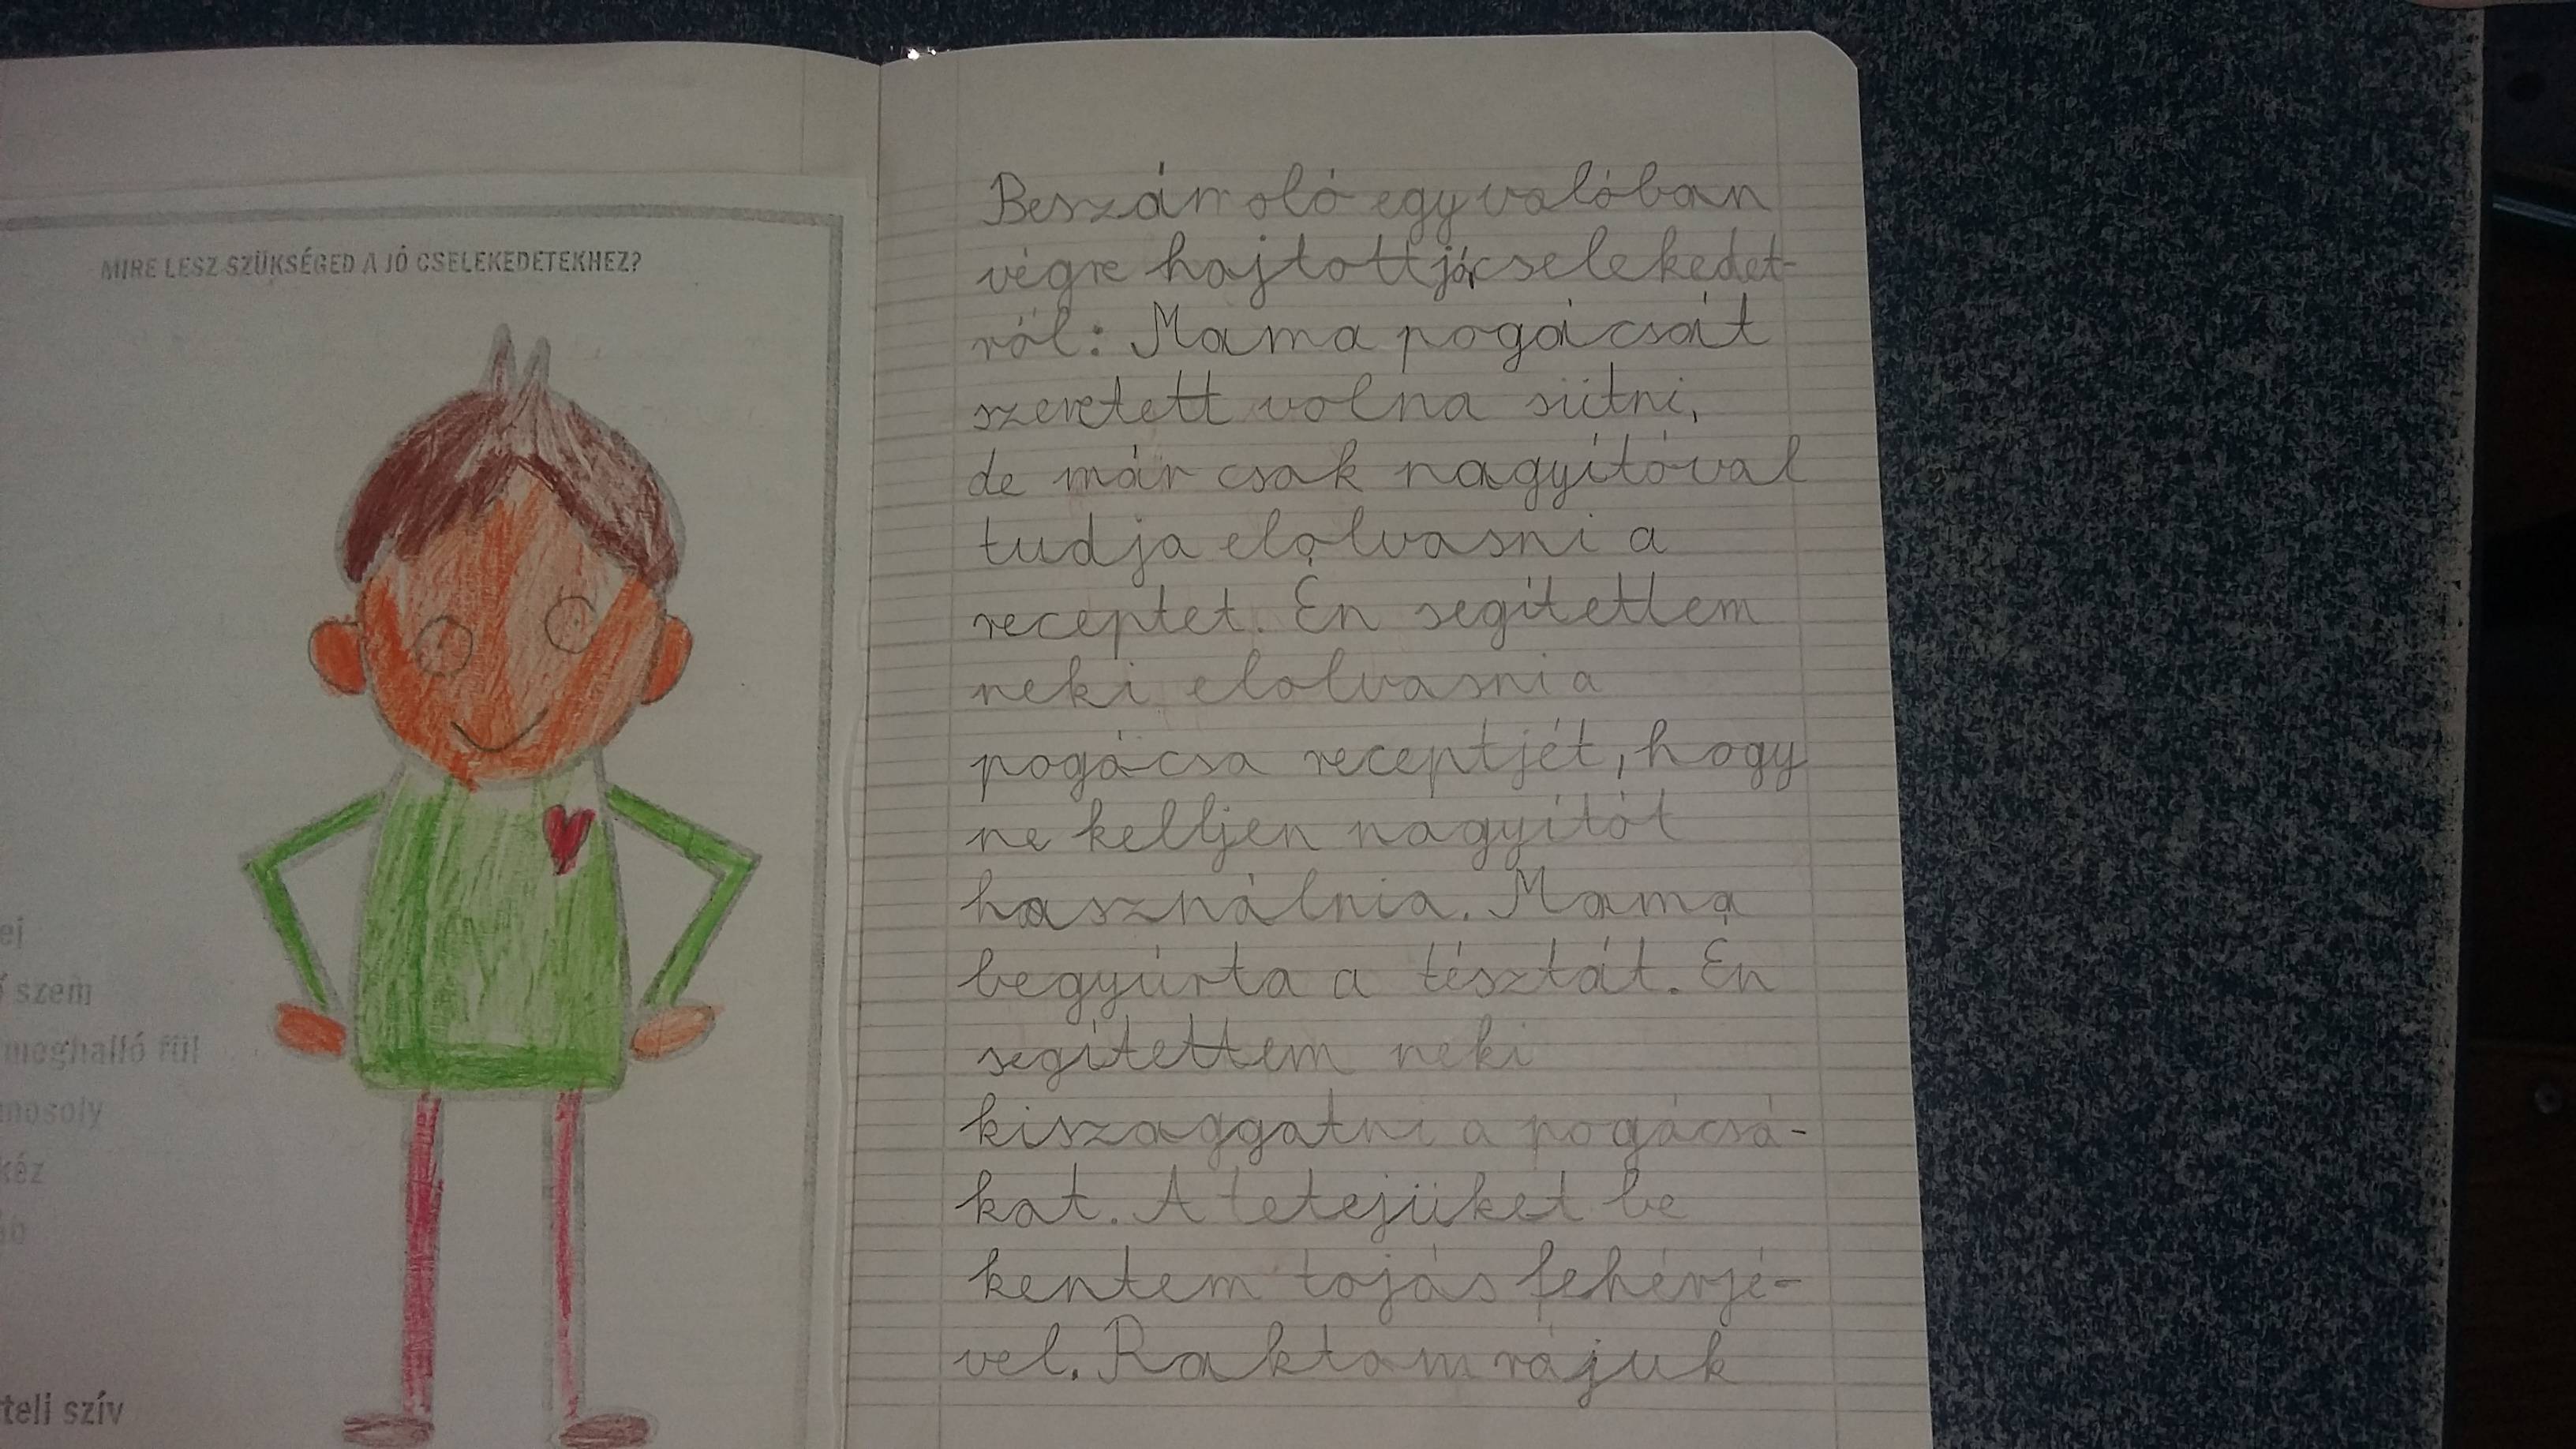 MIRE LESZ SZÜKSÉGED A JÓ CSELEKEDETEKHEZ?
szem
meghalló fül
mosoly
kéz
teli szív
Beszámoló egy valóban
végre hajtott jó cselekedet-
ről: Mama pogácsát
szeretett volna sütni,
de már csak nagyítóval
tudja elolvasni a
receptet. Én segítettem
neki elolvasni a
pogácsa receptjét, hogy
ne kelljen nagyítót
használnia. Mama
begyúrta a tésztát. Én
segítettem neki
kiszaggatni a pogácsá-
kat. A tetejüket be
kentem tojás fehérjé-
vel. Raktam rájuk